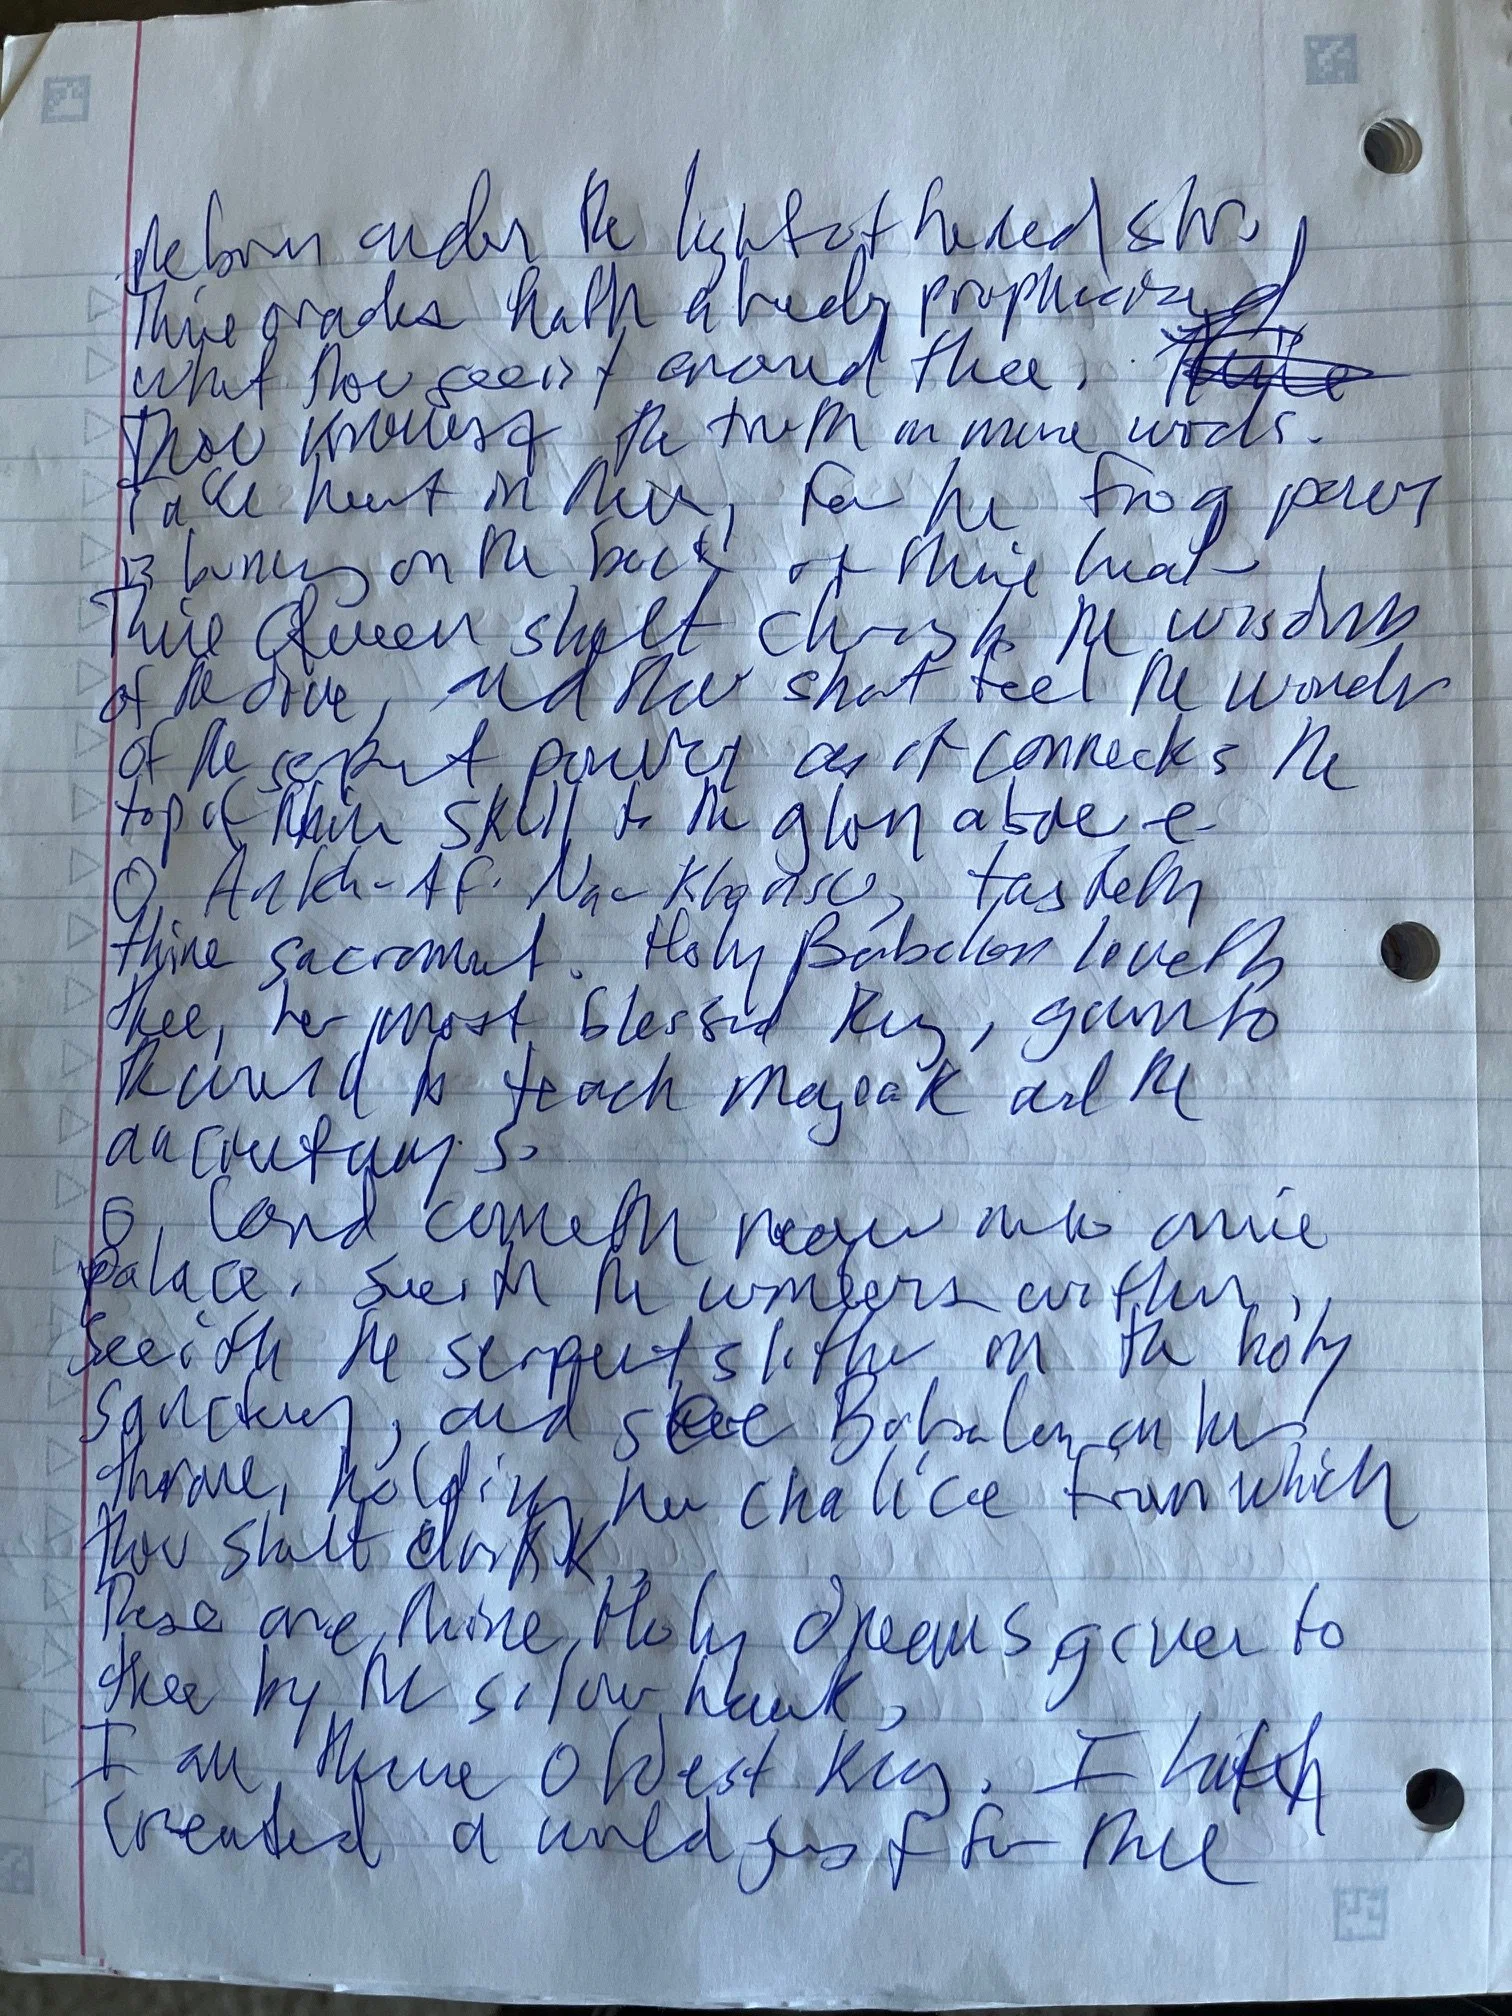 Reborn under the light of the red star.
Thine oracles hath already prophecized
what thou seeist around thee.
Thou knowest the truth in mine words.
Take heart in them, for the frog power
is burning on the back of thine head.
Thine Queen shalt cherish the wisdom
of the divine, and thou shalt feel the wonder
of the serpent power as it connecks the
top of thine skull to the glory above
O, Ankh-Af-Na-Khonsu, tasteth
thine sacrament. Holy Babalon loveth
thee, her most blessed Key, given to
the world to teach magick and the
ancient ways.
O, Lord cometh near into mine
palace. Seeith the wonders within,
Seeith the serpent slither in the holy
sanctuary, and see Babalon on her
throne, holding her chalice from which
thou shalt drink.
These are thine Holy dreams given to
thee by the silver hawk,
I am thine oldest Key. I hateh
created a world just for thee